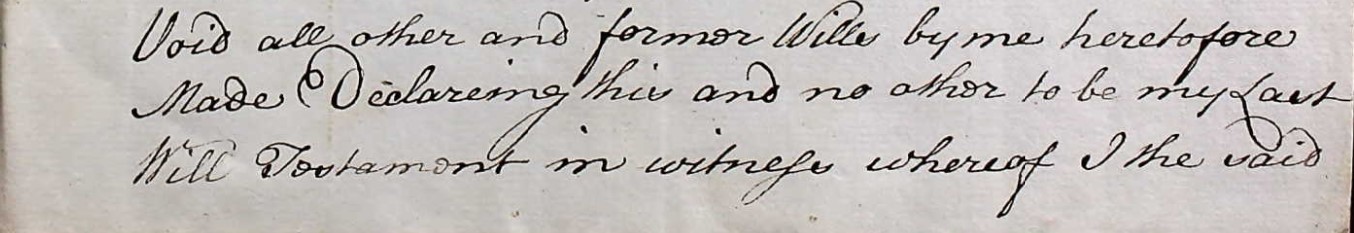 Void all other and former Wills by me heretofore
Made Declareing this and no other to be my Last
Will Testament in witness whereof I the said